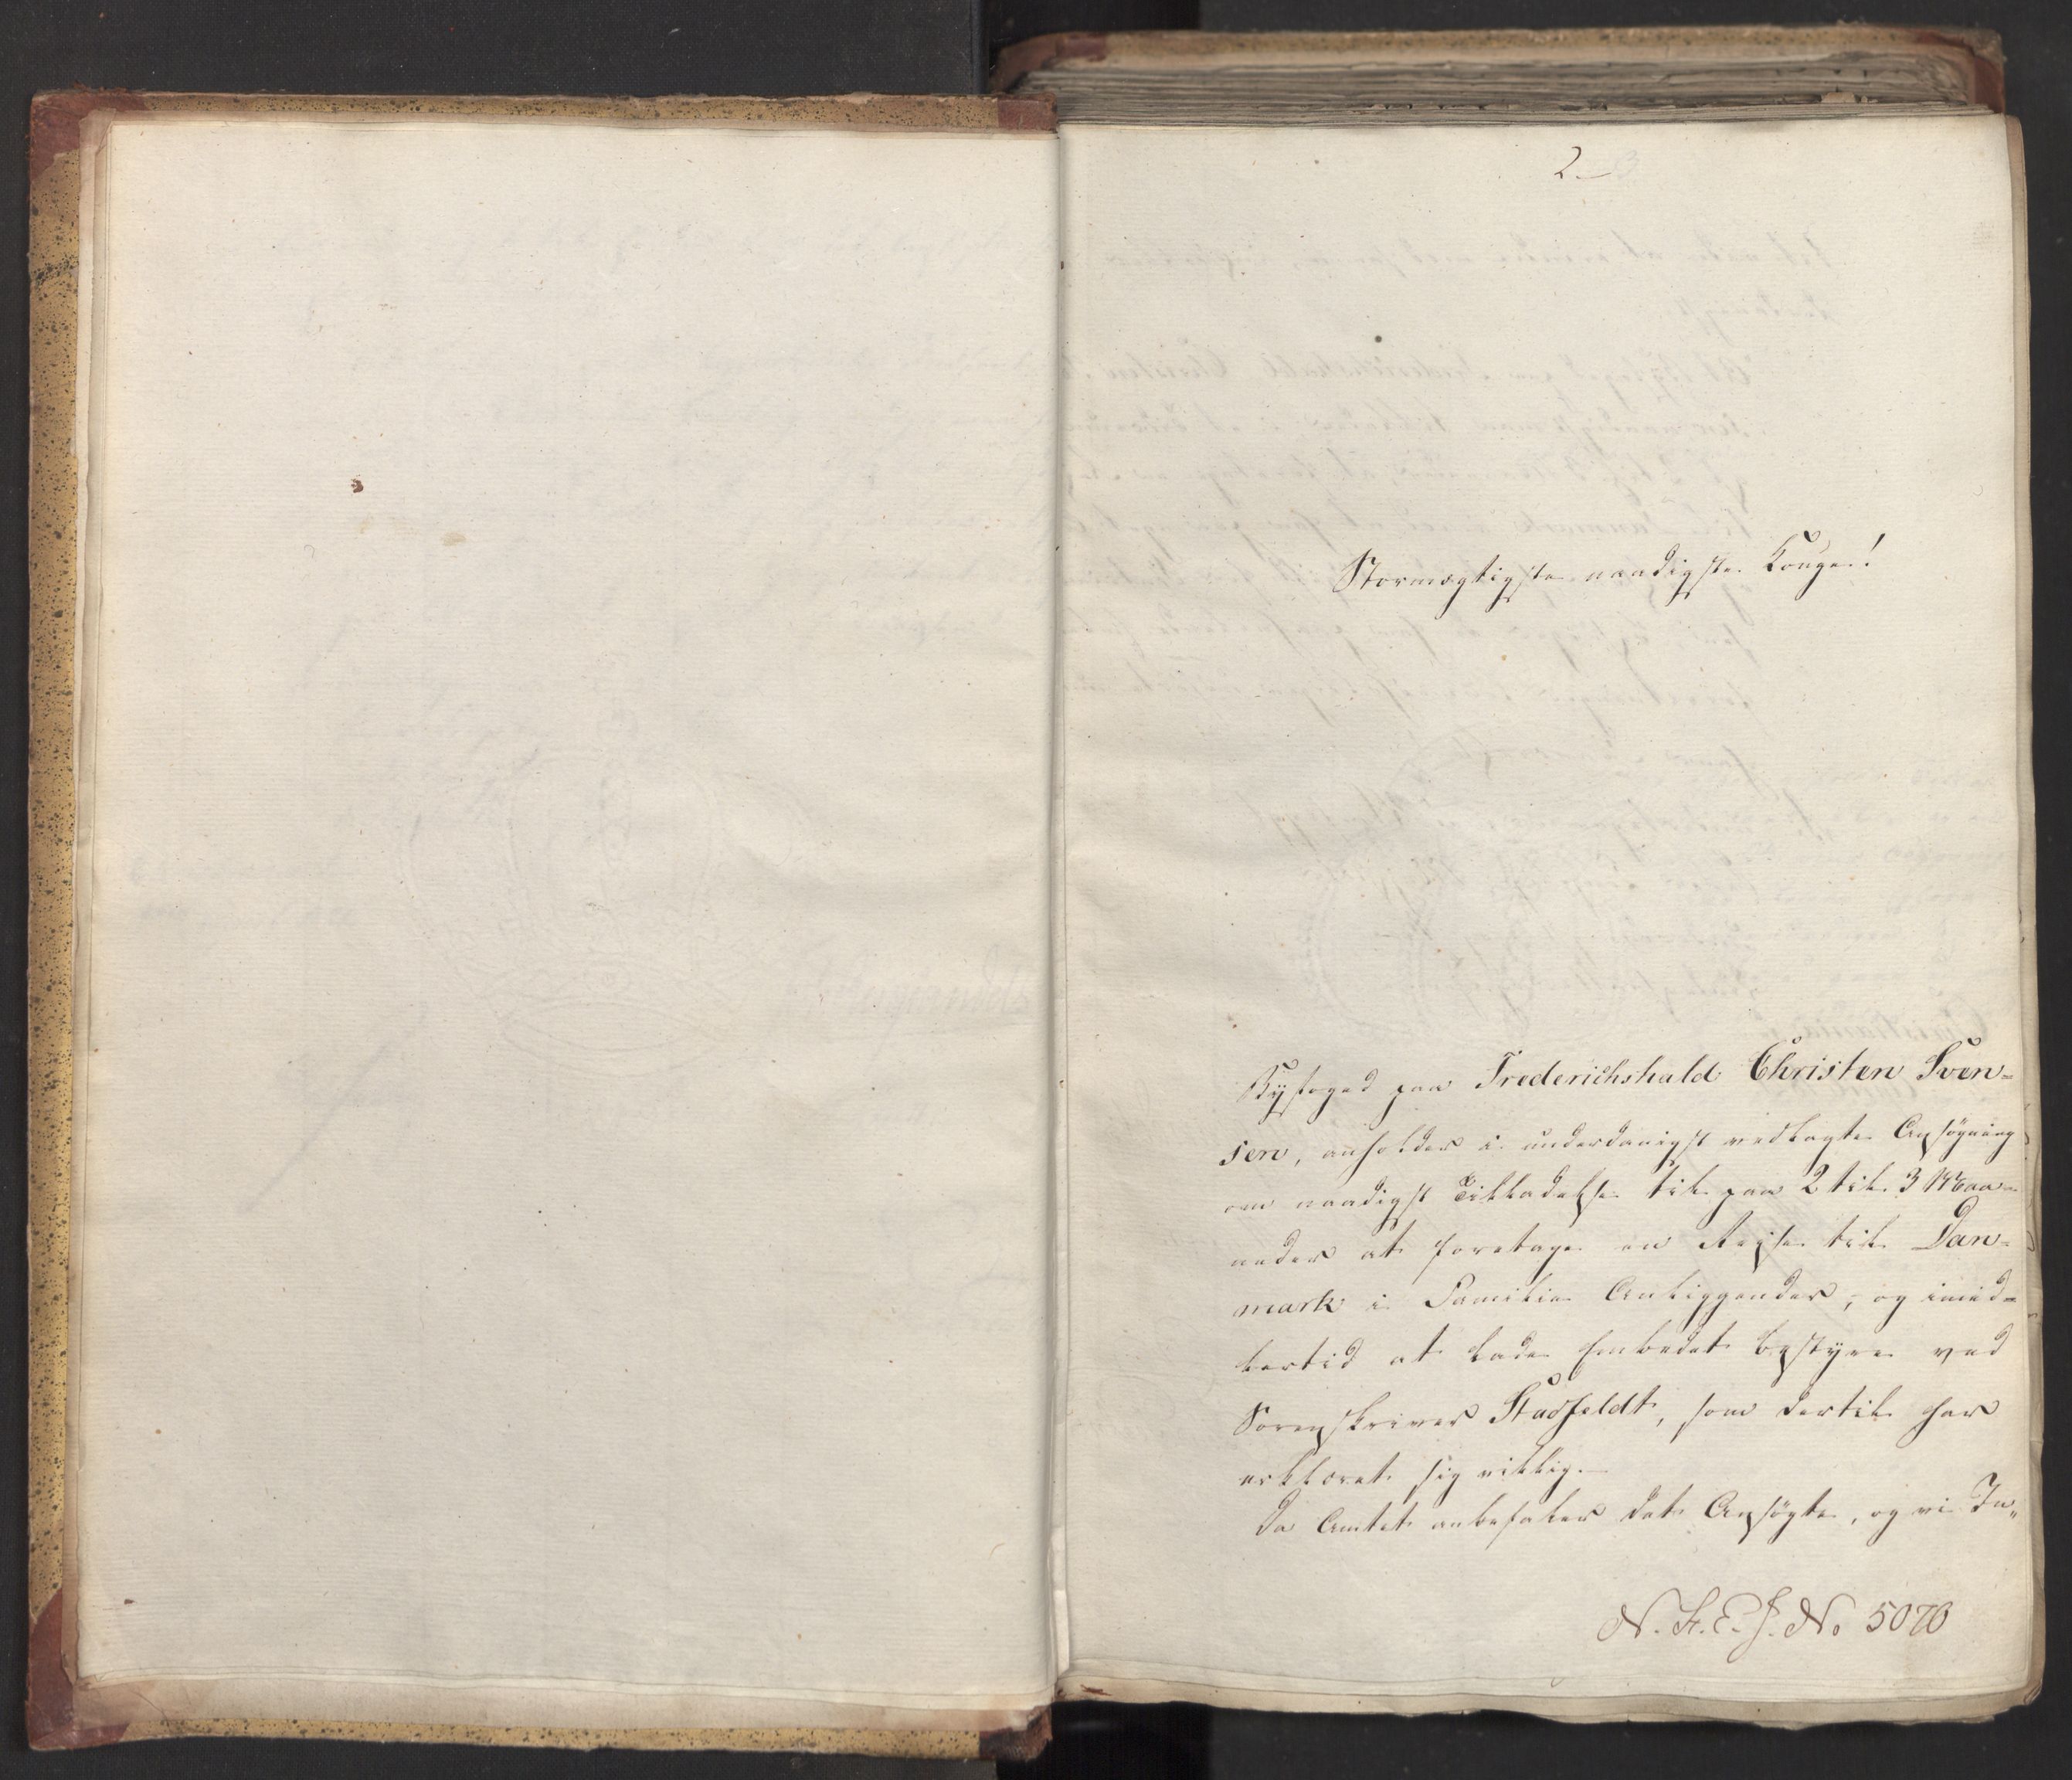 2.
Stormægtigste naadigste Konge!
Byfoged paa Frederichshald Christen Sven=
sen, anholder i underdanigst vedlagte Ansøgning
om naadigst Tilladelse til paa 2 til 3 Maa=
neder at foretage en Reise til Dan=
mark i Familie Anliggender, og imid=
lertid at lade Embedet bestyre ved
Sorenskriver Stadfeldt, som dertil har
erklæret sig villig.
Da Amtet anbefaler det Ansøgte, og vi In„
N. F. E. J. No 5070